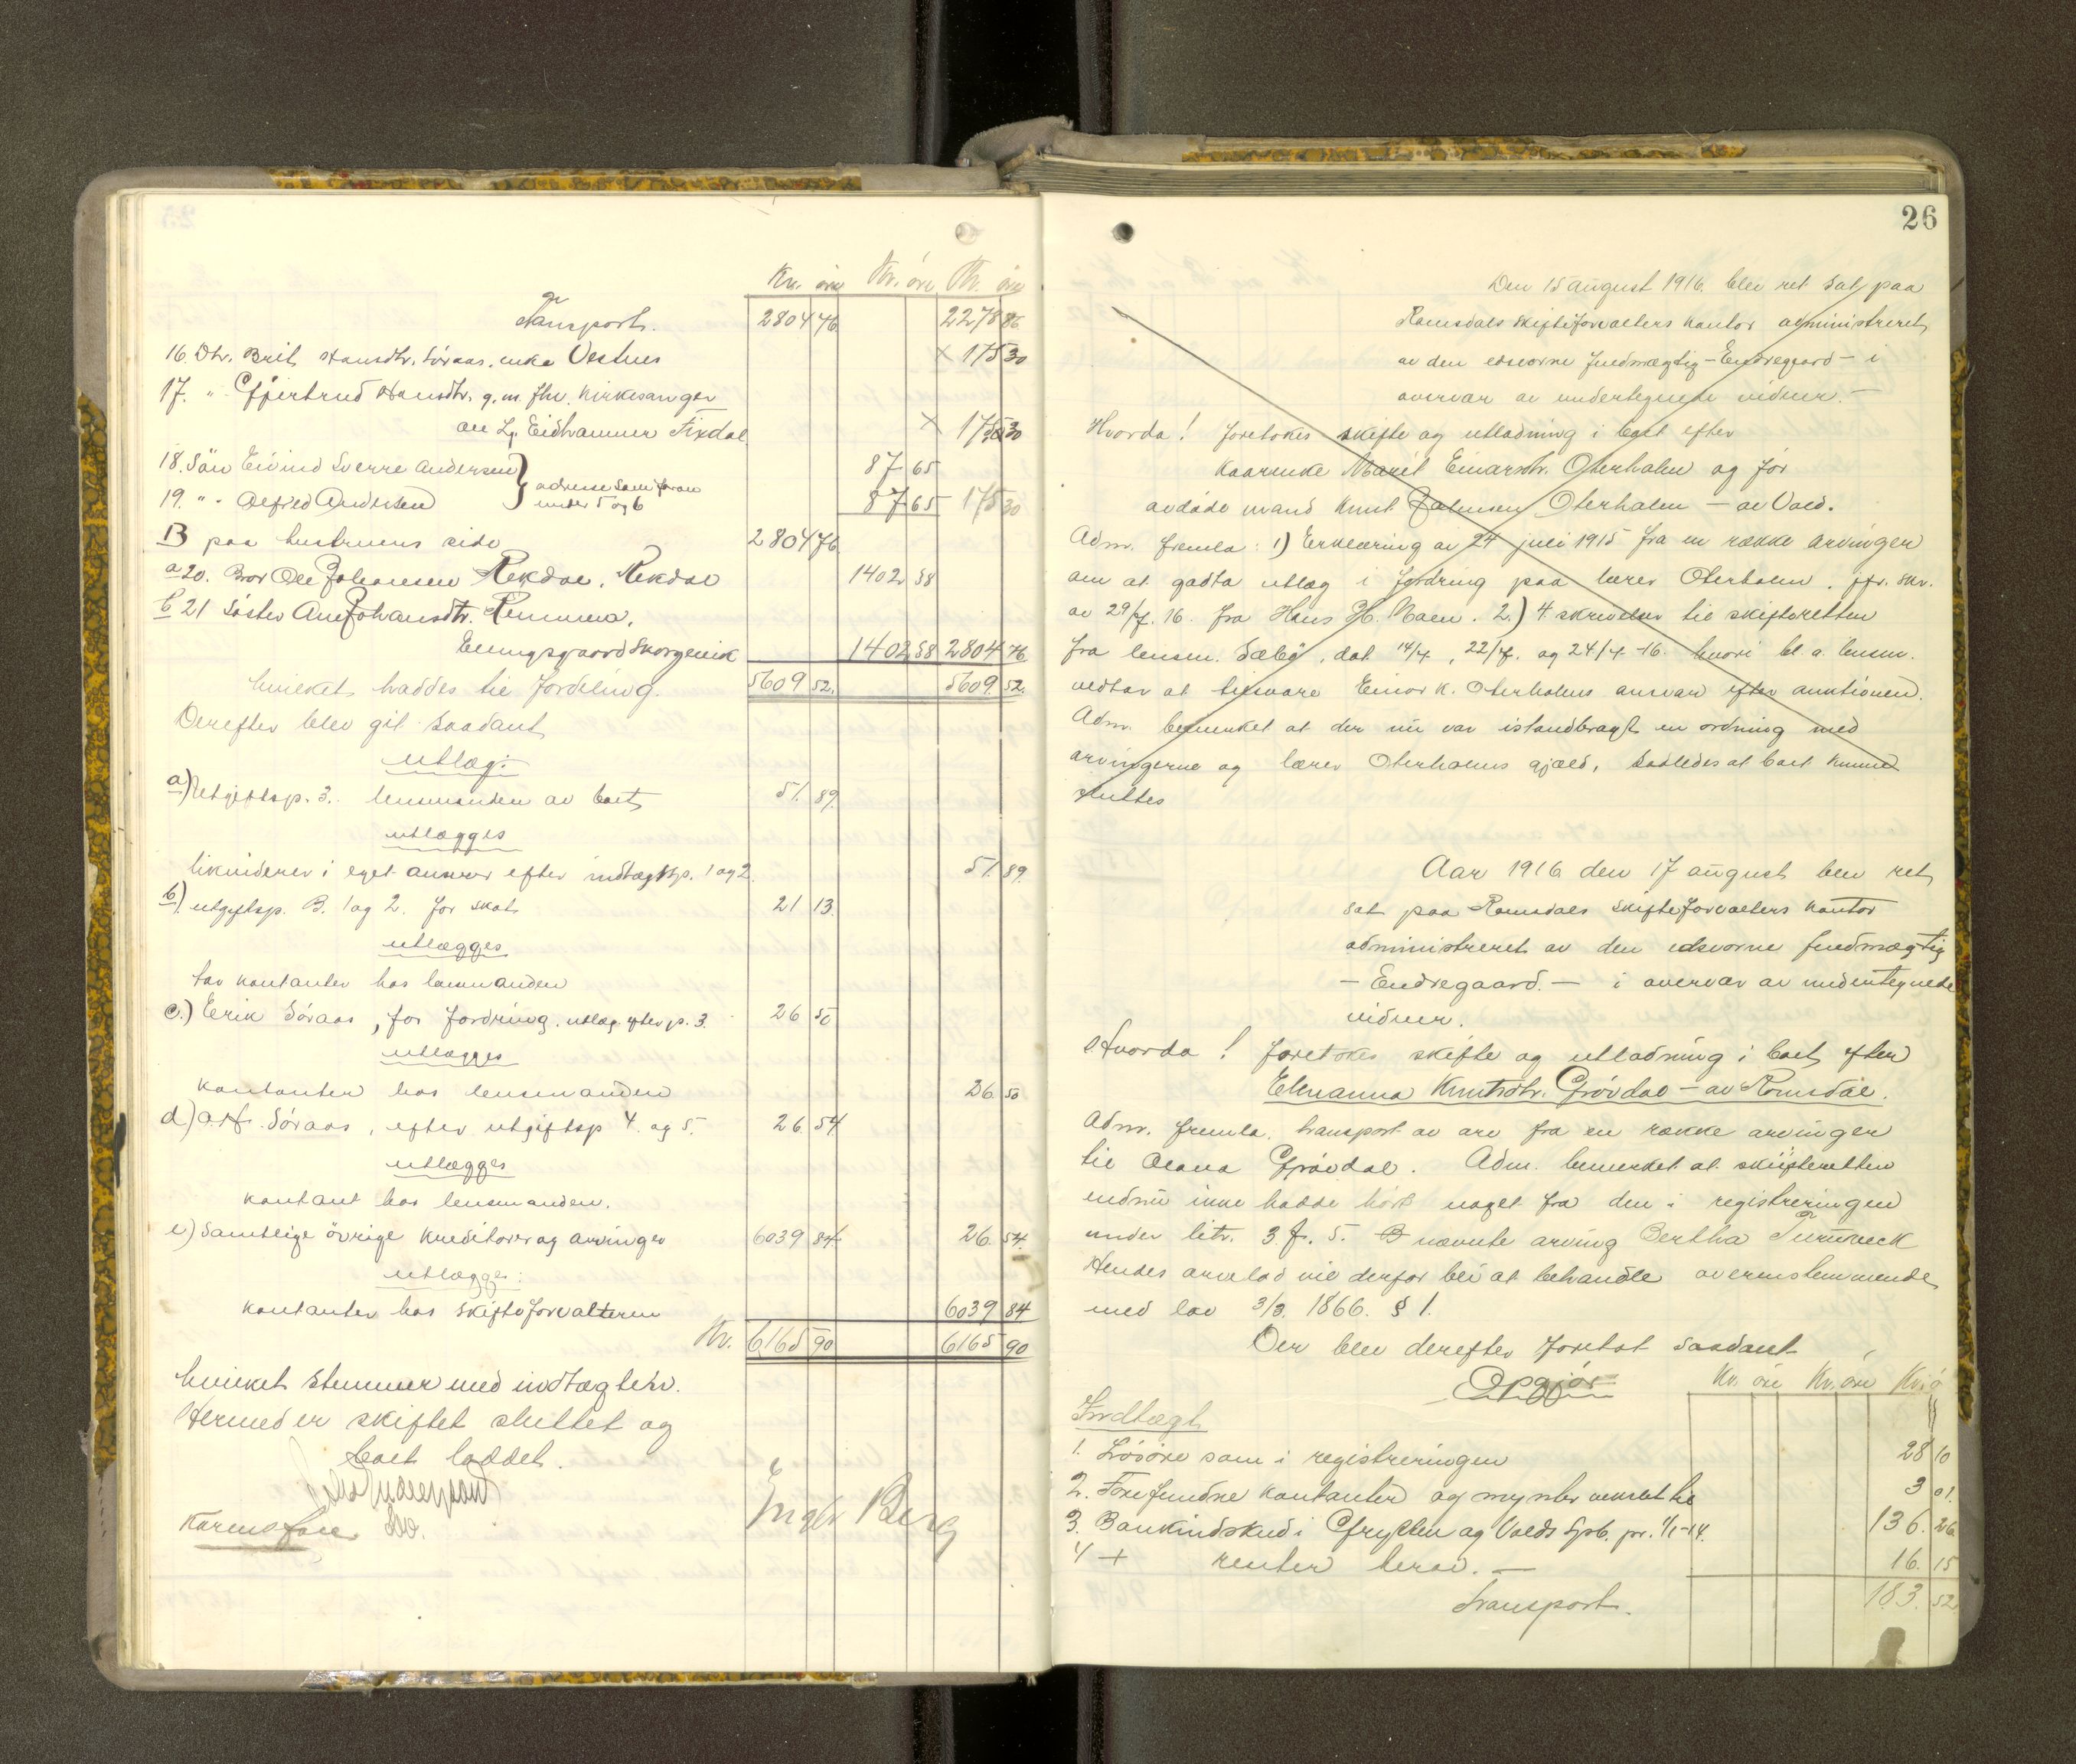 Kr. øre Kr. øre Kr. øre
Transport. 2804 76 2278 86
16. Dtr. Brit Hansdtr. Søraas, enke Vestnes × 175 30
17. " Gjertrud Hansdtr. g. m. fhv. kirkesanger
Eidhammer Fixdal × 175 30
18. Søn Eivind Sverre Andersen 87 65
19. " - Alfred Andersen } adresse som foran under 5 og 6 87 65 175 30
B paa hustruens side 2804 76
a 20. Bror Ole Johansen Rekdal, Rekdal 1402 38
b 21 Søster Ane Johansdtr. Remmem,
Ellingsgaard Skorgenvik 1402 38 2804 76
hvilket haddes til fordeling. 5609 52. 5609 52.
Derefter blev git saadant
utlæg:
a) Utgiftsp. 3. lensmanden av boet 51. 89.
utlægges
likviderer i eget ansvar efter indtægtsp. 1 og 2. 51. 89.
b) utgiftsp. B. 1 og 2. for skat 21 13.
utlægges
kontanter hos lensmanden
c.) Erik Søraas, for fordring, utlæg efter p. 3. 26 50
utlægges
kontanter hos lensmanden 26 50
d) Søraas, efter utgiftsp 4. og 5. 26 54
utlægges
kontant hos lensmanden.
e) Samtlige øvrige kreditorer og arvinger 6039 84. 26 54.
utlægges:
kontanter hos skifteforvalteren 6039 84
Kr. 6165 90 6165 90
hvilket stemmer med indtægten.
Hermed er skiftet sluttet og
boet loddet.
Inger Berg
26
Den 15 august 1916. blev ret sat paa
Romsdals skifteforvalters kontor administreret
av den edsvorne fuldmægtig - Endregaard - i
overvær av undertegnede vidner. -
Hvorda! foretokes skifte og utlodning i boet efter
kaarenke Marit Einarsdtr. Oterhalm og før
avdøde mand Knut Oterhalm - av Vold.
Adm. fremla: 1) Erklæring av 24 juli 1915 fra en række arvinger
om at godta utlæg i fordring paa lærer Oterholm. jfr. skr.
av 29/7. 16. fra Hans H. Moen. 2.) 4 skrivelser til skifteretten
fra lensm. Sæbø, dat 14/4, 22/7. og 24/7 -16. hvori bl. a. lensm.
vedtar at tilsvare Einar K. Oterholms ansvar efter auktionen.
Adm. bemerket at der nu var istandbragt en ordning med
arvingerne og lærer Oterholms gjæld, saaledes at boet kunde
sluttes
Aar 1916 den 17 august blev ret
sat paa Romsdals skifteforvalters kontor
administreret av den edsvorne fuldmægtig
- Endregaard. - i overvær av undertegnede
vidner.
Hvorda! foretokes skifte og utlodning i boet efter
Elenanna Knutsdtr. Grøvdal - av Romsdal.
Adm. fremla. transport av arv fra en række arvinger
til Olava Grøvdal. Adm. bemerket at skifteretten
endnu ikke hadde hørt noget fra den i registreringen
under litr. 3 f. 5. nævnte arving Bertha
Hendes arvelod vil derfor bli at behandle overensstemmende
med lov 3/3. 1866. § 1.
Der blev derefter foretat saadant
Opgjør
Kr. øre Kr. øre Kr. ø
Indtægt
1. Løsøre som i registreringen 28 10
2. Forefundne kontanter og mynter vekslet til 3 01.
3. Bankindskud i Grytten og Volds Spb. pr. 1/1-14. 136. 26
4 + renter herav. - 16. 15
Transport. 183. 52